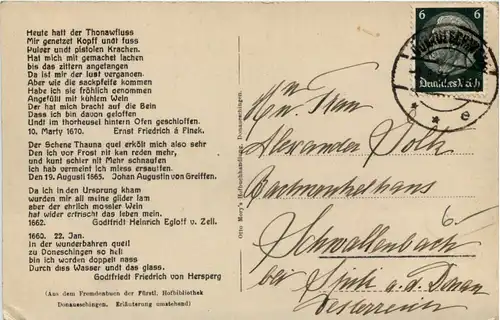 Heute hatt der Thonawfluss
Mir genetzet Kopff undt fuss
Pulver undt pistolen Krachen.
Hat mich mit gemachet bellen
bis das zittern angefangen
Da ist mir der lust vergangen.
Aber wie die sackpfeife kommen
Habe ich sie fröhlich genommen
Angefüllt mit kühlem Wein
Der hat mich bracht auf die Bein
Dass ich bin davon geloffen
Undt im thorheusel hintern Ofen geschloffen.
10. Marty 1610. Ernst Friedrich à Finck.
Der Schene Thauna quel erkölt mich also sehr
Den ich vor Frost nit kan reden mehr,
und kunt schier nit Mehr schnaufen
ich hab vermeint ich miess ersaufen.
Den 19. Augusti 1665. Johan Augustin von Greiffen.
Da ich in den Ursprung kham
wurden mir all meine glider lam
aber der ehrlich mossler Wein
hat wider erfrischt das leben mein.
1662. Godtfridt Heinrich Egloff v. Zell.
1660. 22. Jan.
In der wunderbahren quell
zu Doneschingen so hell
bin ich worden doppelt nass
Durch diss Wasser undt das glass.
Godtfriedt Friedrich von Hersperg
(Aus dem Fremdenbuch der Fürstl. Hofbibliothek
Donaueschingen. Erläuterung umstehend)
Otto Mory's Hofbuchhandlung, Donaueschingen.
6 6
Deutsches Reich
* * e
Frau
Alexander
6-
Schwallenbach
bei Spitz a. d. Donau
Oesterreich